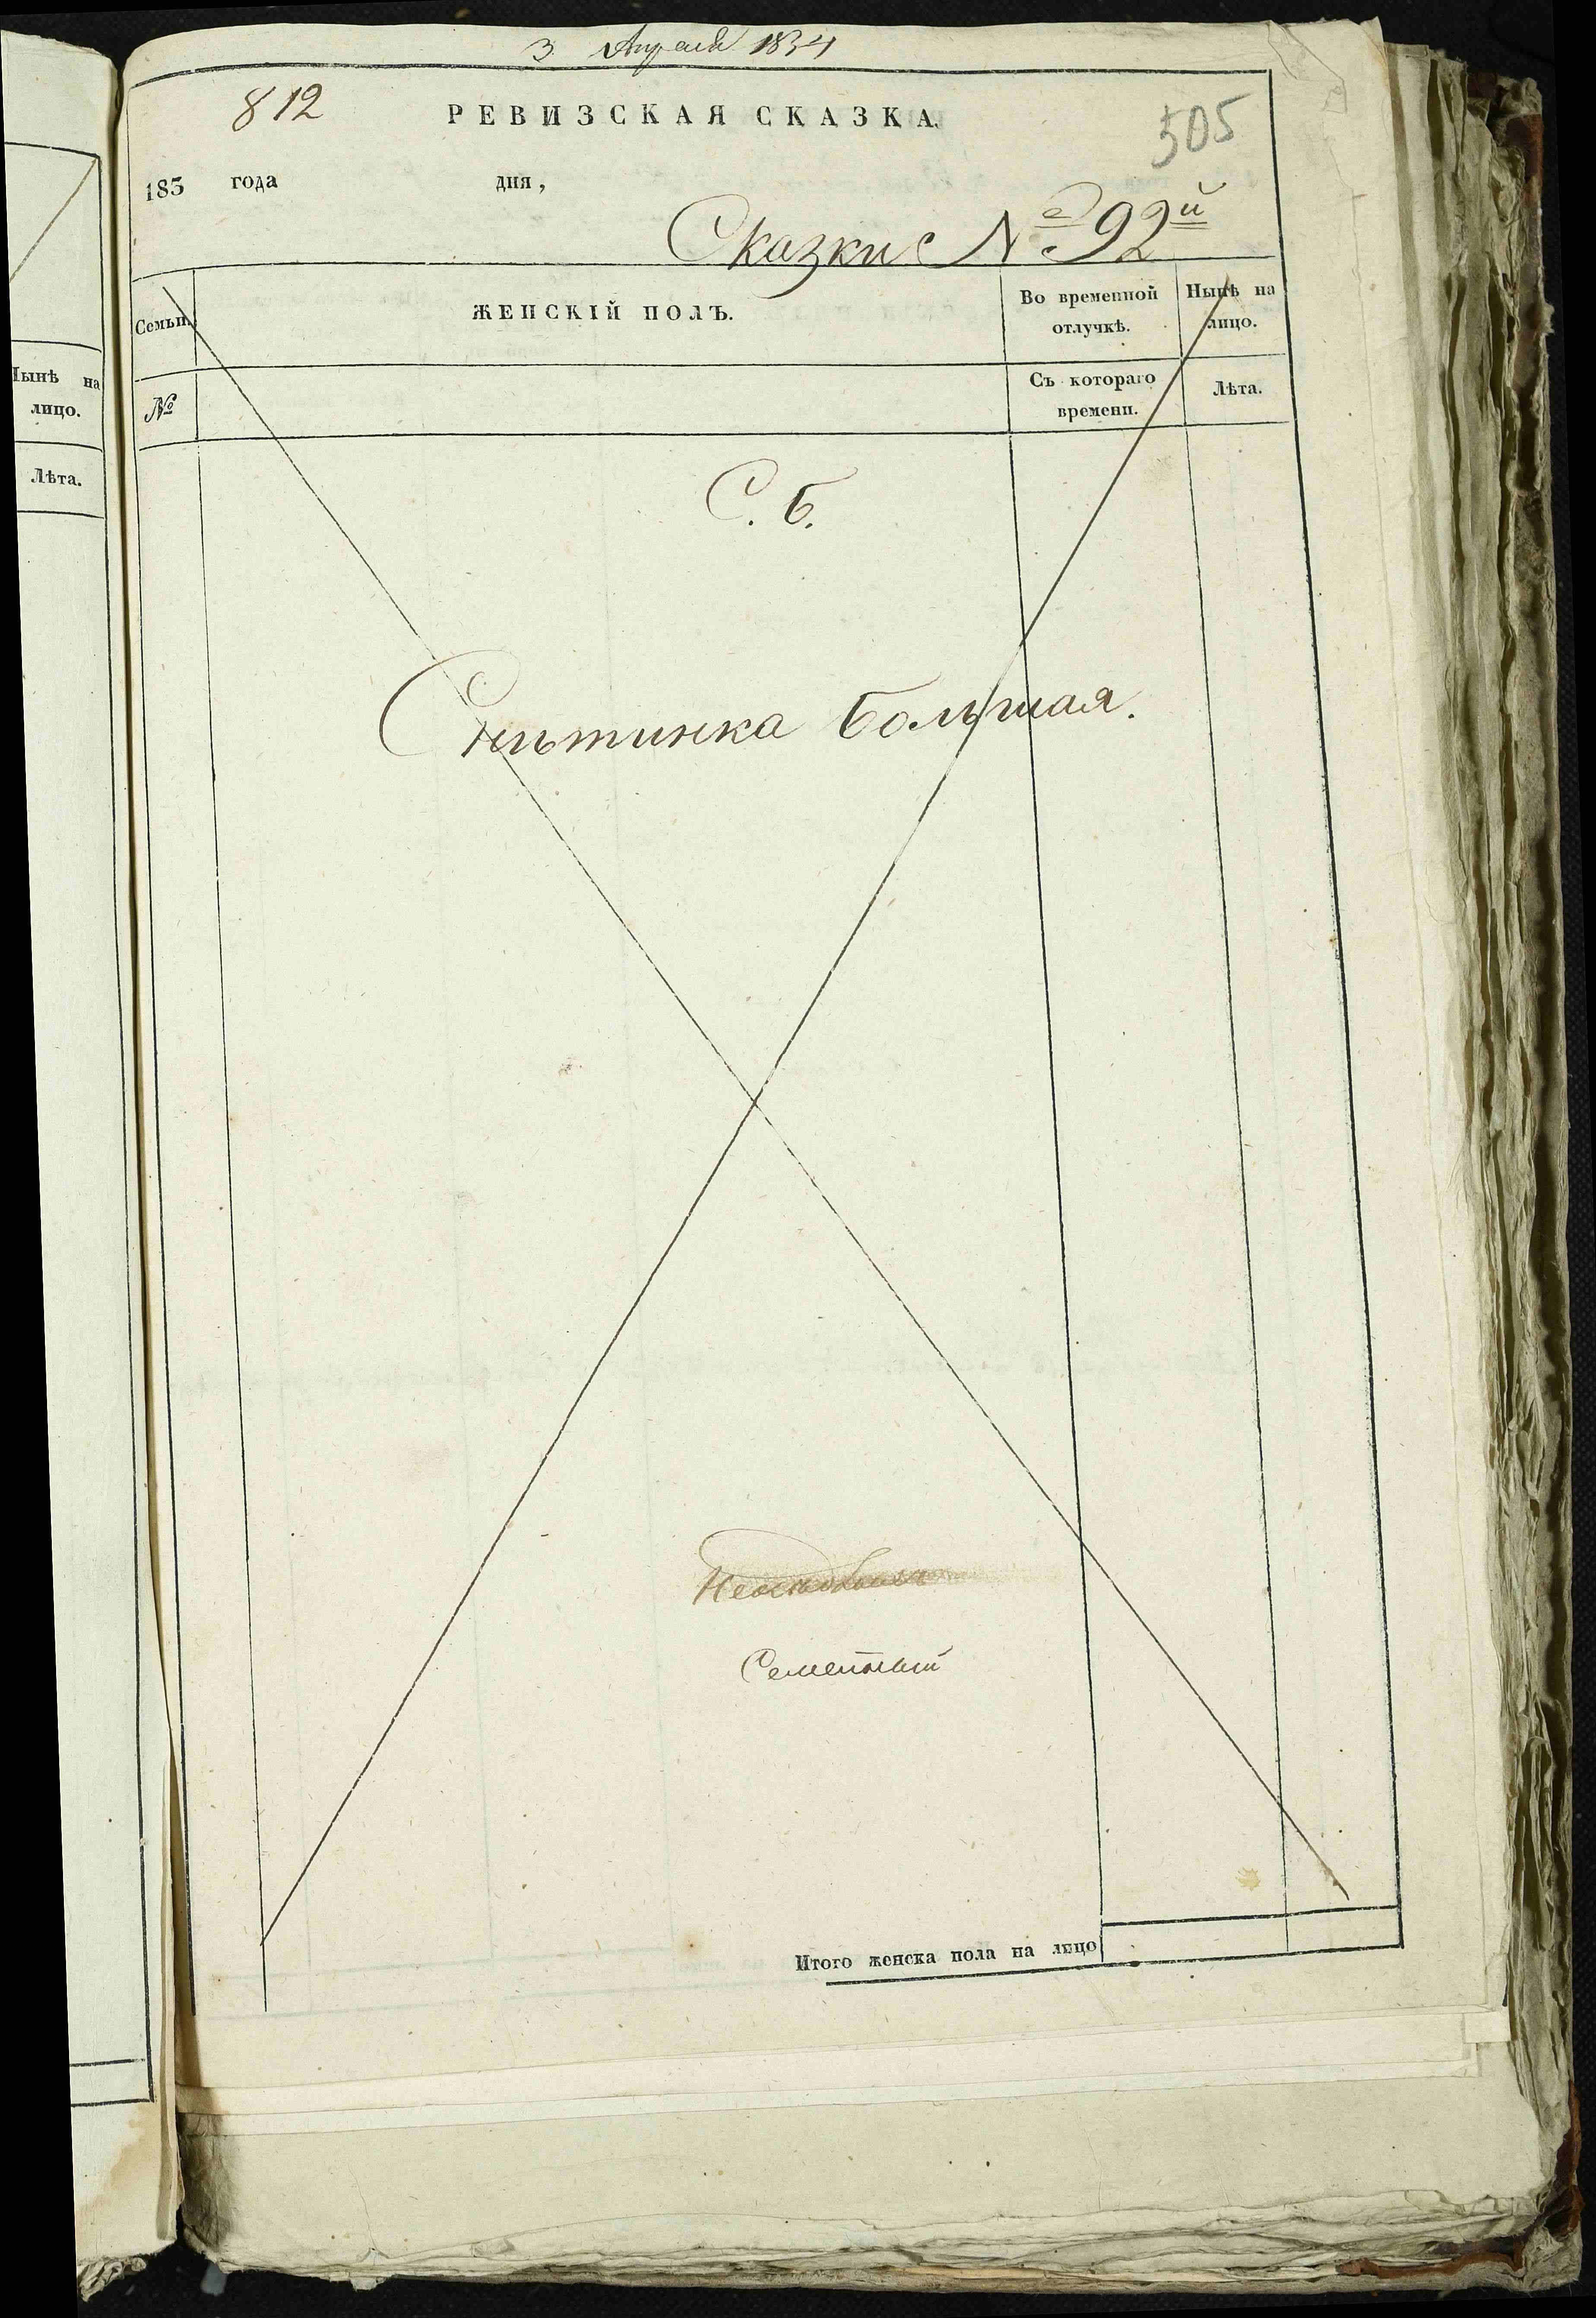 3 Апреля 1834
812
РЕВИЗСКАЯ СКАЗКА.
505
183 года дня,
Сказки № 92й
Семьи.
ЖЕНСКІЙ ПОЛЪ.
Во временной отлучкѣ.
Нынѣ на лицо.
№
Съ котораго времени.
Лѣта.
С. Б.
Снѣтинка Большая.
Семейный
Итого женска пола на лицо
Нынѣ на
лицо.
Лѣта.